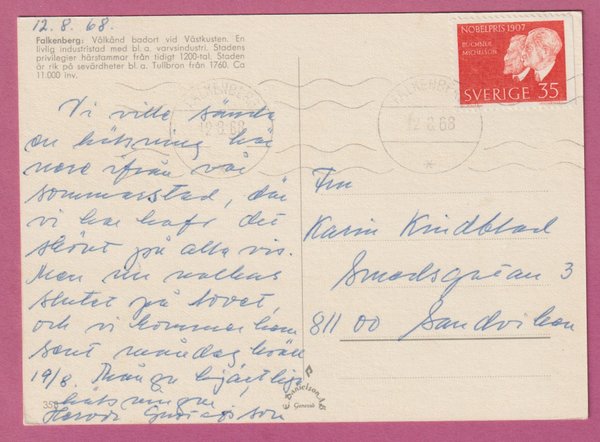 12.8.68.
Falkenberg: Välkänd badort vid Västkusten. En
livlig industristad med bl. a. varvsindustri. Stadens
privilegier härstammar från tidigt 1200-tal. Staden
är rik på sevärdheter bl. a. Tullbron från 1760. Ca
11.000 inv.
NOBELPRIS 1907
BUCHNER
MICHELSON
SVERIGE 35
FALKENBERG
12.8.68
FALKENBERG
12.8.68
Vi ville sända
en hälsning här
nere ifrån vår
sommarstad, där
vi har haft det
skönt på alla vis.
Men nu nalkas
slutet på lovet,
och vi kommer hem
sent måndag kväll
19/8. Många hjärtliga
hälsningar
Gustafsson
Fru
Karin Kindblad
Smedsgatan 3
811 00 Sandviken
Grensrid